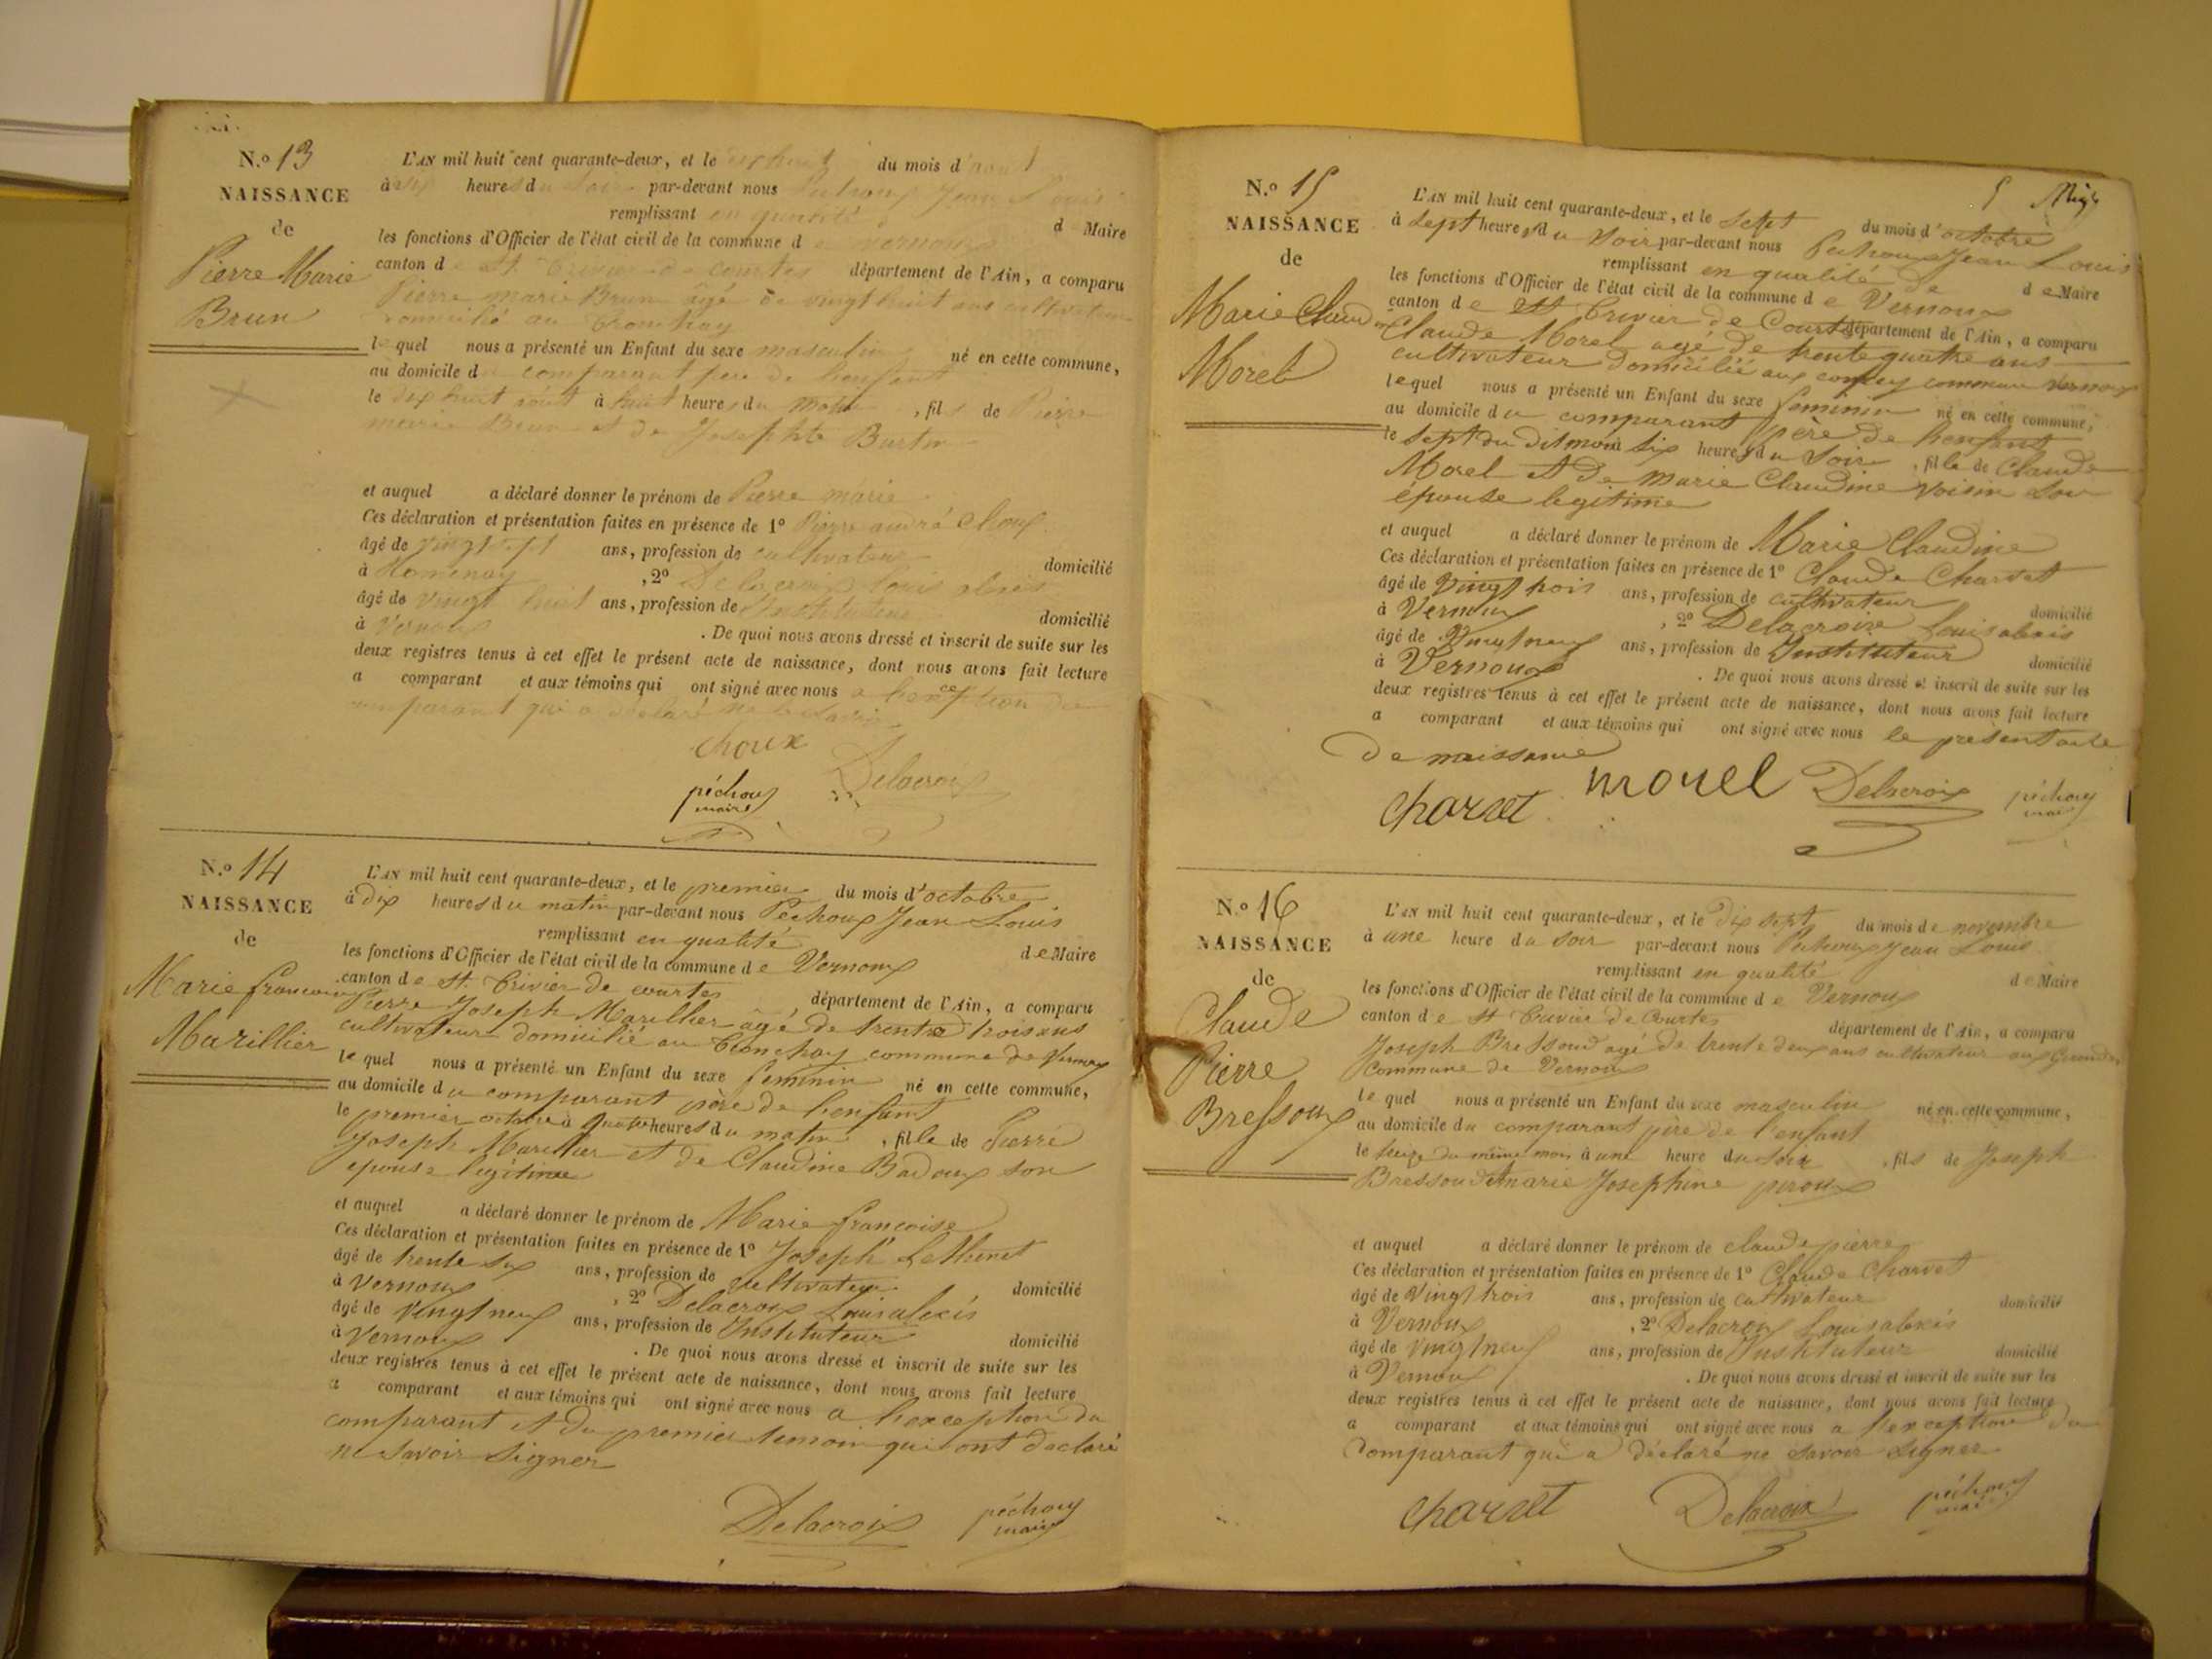 N.o 13
NAISSANCE
de
Pierre Marie
Brun
L'AN mil huit cent quarante-deux, et le dix huit du mois d'août
à six heures du soir par-devant nous Péchoux Jean Louis
remplissant en qualité d Maire
les fonctions d'Officier de l'état civil de la commune de Vernoux
canton de St Trivier de Courtes département de l'Ain, a comparu
Pierre marie Brun âgé de vingt huit ans cultivateur
domicilié au
lequel nous a présenté un Enfant du sexe masculin né en cette commune,
au domicile du comparant père de l'enfant
le dix huit août à huit heures du matin, fils de Pierre
marie Brun et de Josephte Burtin
et auquel a déclaré donner le prénom de Pierre marie
Ces déclaration et présentation faites en présence de 1º Pierre andré Choux
âgé de vingt sept ans, profession de cultivateur domicilié
à Romenay, 2º Delacroix Louis alexis
âgé de vingt huit ans, profession de Instituteur domicilié
à Vernoux. De quoi nous avons dressé et inscrit de suite sur les
deux registres tenus à cet effet le présent acte de naissance, dont nous avons fait lecture
a comparant et aux témoins qui ont signé avec nous a l'exception du
comparant qui a déclaré ne le savoir
choux Delacroix
péchoux
maire
N.o 14
NAISSANCE
de
Marie francoise
Marillier
L'AN mil huit cent quarante-deux, et le premier du mois d'octobre
à dix heures du matin par-devant nous Péchoux Jean Louis
remplissant en qualité de Maire
les fonctions d'Officier de l'état civil de la commune de Vernoux
canton de St Trivier de courtes département de l'Ain, a comparu
Pierre Joseph Marillier âgé de trente trois ans
cultivateur domicilié au Tronchay commune de Vernoux
lequel nous a présenté un Enfant du sexe feminin né en cette commune,
au domicile du comparant père de l'enfant
le premier octobre à quatre heures du matin, fille de Pierre
Joseph Marillier et de Claudine Badoux son
epouse legitime
et auquel a déclaré donner le prénom de Marie francoise
Ces déclaration et présentation faites en présence de 1º Joseph
âgé de trente six ans, profession de cultivateur domicilié
à Vernoux, 2º Delacroix Louis alexis
âgé de vingt neuf ans, profession de Instituteur domicilié
à Vernoux. De quoi nous avons dressé et inscrit de suite sur les
deux registres tenus à cet effet le présent acte de naissance, dont nous avons fait lecture
a comparant et aux témoins qui ont signé avec nous a l'exception du
comparant et du premier temoin qui ont declaré
ne savoir signer
Delacroix péchoux
maire
5
N.o 15
NAISSANCE
de
Marie Claudine
Morel
L'AN mil huit cent quarante-deux, et le sept du mois d'octobre
à sept heures du soir par-devant nous Péchoux Jean Louis
remplissant en qualité de de Maire
les fonctions d'Officier de l'état civil de la commune de Vernoux
canton de St Trivier de Courtes département de l'Ain, a comparu
Claude Morel agé de trente quatre ans
cultivateur domicilié aux commune Vernoux
lequel nous a présenté un Enfant du sexe feminin né en cette commune,
au domicile du comparant père de l'enfant
le sept du dit mois à six heures du soir, fille de Claude
Morel et de marie Claudine Voisin son
épouse legitime
et auquel a déclaré donner le prénom de Marie Claudine
Ces déclaration et présentation faites en présence de 1º Claude Charvet
âgé de vingt trois ans, profession de cultivateur domicilié
à Vernoux, 2º Delacroix Louis alexis
âgé de vingt neuf ans, profession de Instituteur domicilié
à Vernoux. De quoi nous avons dressé et inscrit de suite sur les
deux registres tenus à cet effet le présent acte de naissance, dont nous avons fait lecture
a comparant et aux témoins qui ont signé avec nous le présent acte
de naissance
charvet morel Delacroix péchoux
maire
N.o 16
NAISSANCE
de
Claude
Pierre
Bressoux
L'AN mil huit cent quarante-deux, et le dix sept du mois de novembre
à une heure du soir par-devant nous Péchoux Jean Louis
remplissant en qualité de Maire
les fonctions d'Officier de l'état civil de la commune de Vernoux
canton de St Trivier de Courtes département de l'Ain, a comparu
Joseph Bressoud agé de trente deux ans cultivateur aux
commune de Vernoux
lequel nous a présenté un Enfant du sexe masculin né en cette commune,
au domicile du comparant père de l'enfant
le seize du même mois à une heure du soir, fils de Joseph
Bressoud et marie Josephine piroux
et auquel a déclaré donner le prénom de claude pierre
Ces déclaration et présentation faites en présence de 1º Claude Charvet
âgé de vingt trois ans, profession de cultivateur domicilié
à Vernoux, 2º Delacroix Louis alexis
âgé de vingt neuf ans, profession de Instituteur domicilié
à Vernoux. De quoi nous avons dressé et inscrit de suite sur les
deux registres tenus à cet effet le présent acte de naissance, dont nous avons fait lecture
a comparant et aux témoins qui ont signé avec nous a l'exception du
comparant qui a déclaré ne savoir signer
charvet Delacroix péchoux
maire